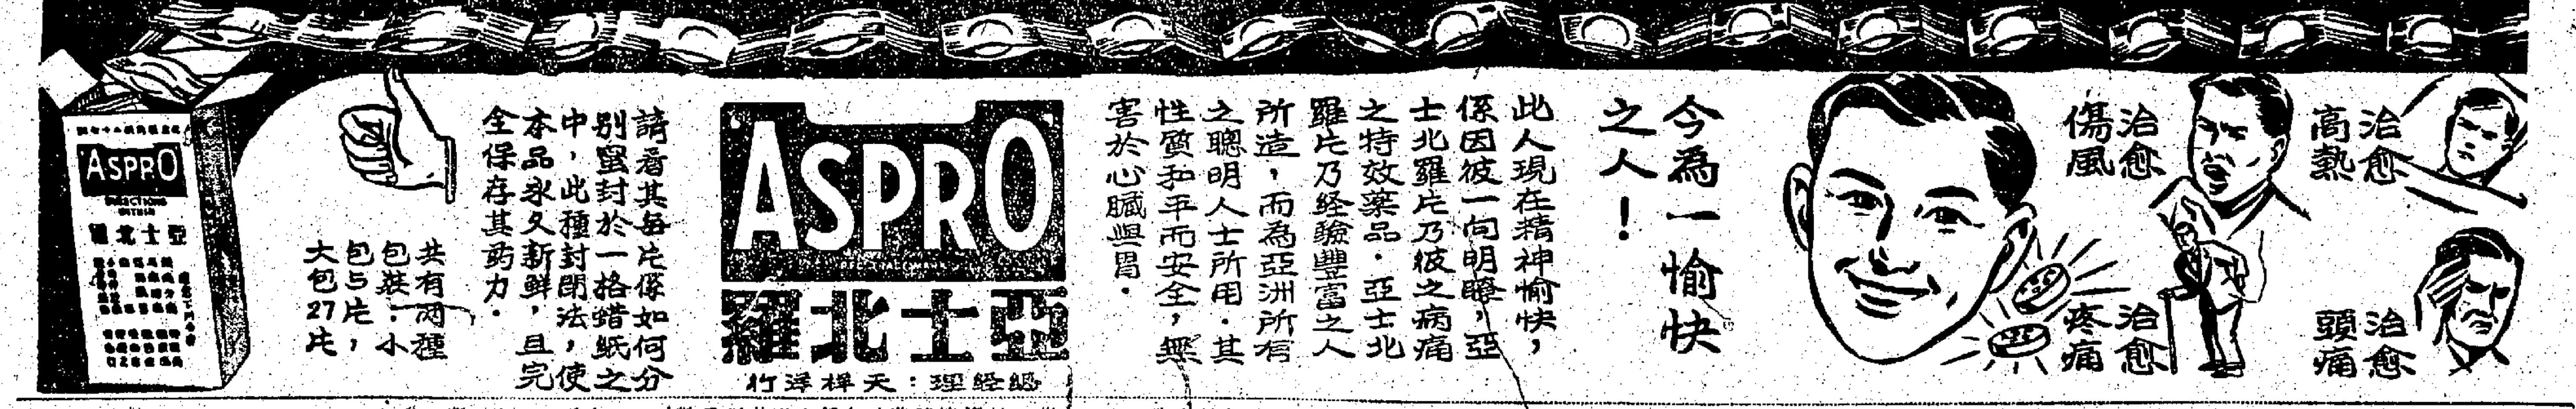 治愈
高熱
治愈
頭痛
治愈
傷風
治愈
疼痛
今為一愉快
之人！
此人現在精神愉快，
係因彼一向明瞭，亞
士北羅片乃彼之病痛
之特效藥品．亞士北
羅片乃経驗豐富之人
所造，而為亞洲所有
之聰明人士所用．其
性質和平而安全，無
害於心臟與胃．
ASPRO
亞士北羅
總經理：天祥洋行
請看其每片係如何分
别蜜封於一格蜡紙之
中，此種封閉法，使
本品永久新鮮，且完
全保存其药力．
共有两種
包裝：小
包5片，
大包27片
ASPRO
DIRECTIONS
WITHIN
亞士北羅